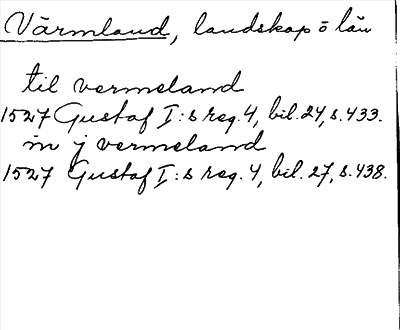 Värmland, landskap o län
til vermeland
1527 Gustaf I:s reg. 4, bil. 24, s. 433.
in j vermeland
1527 Gustaf I:s reg. 4, bil. 27, s. 438.